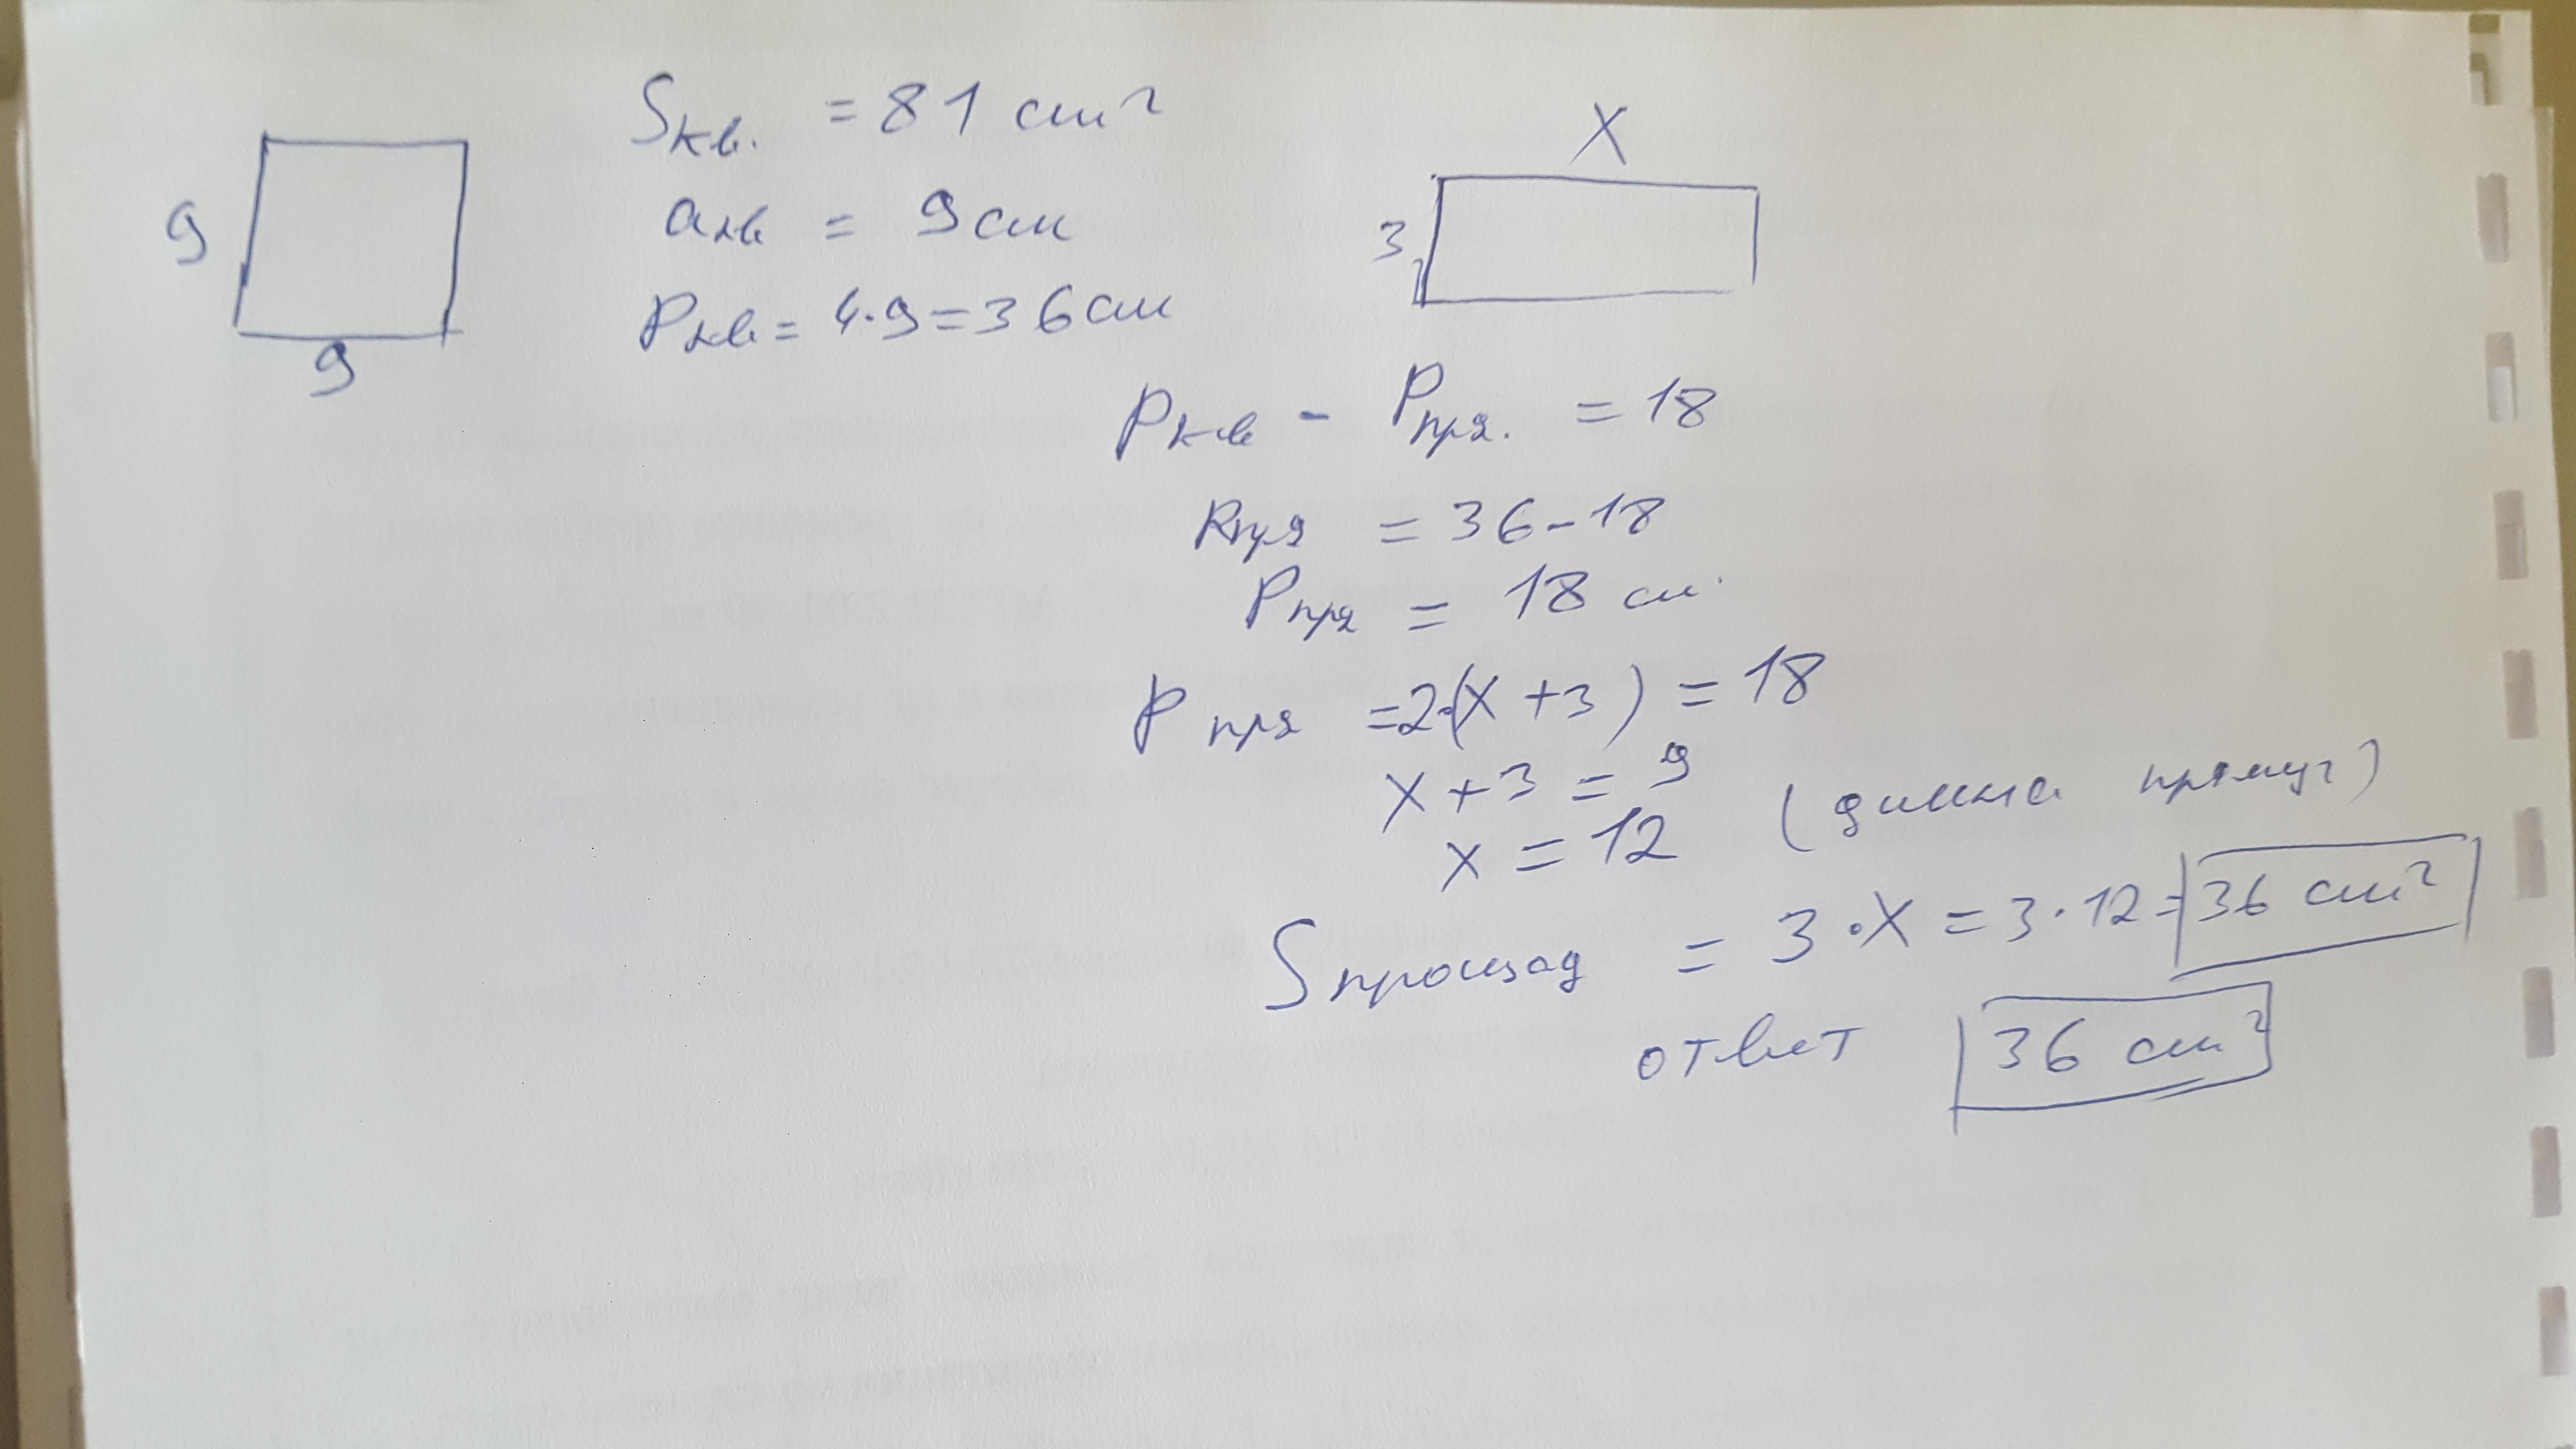 9
9
Sкв. = 81 см²
aкв = 9 см
Pкв = 4·9 = 36 см
X
3
Pкв - Pпря. = 18
Pпря = 36 - 18
Pпря = 18 см
Pпря = 2·(X + 3) = 18
X + 3 = 9
x = 12 (длина прямуг)
Sплощад = 3·X = 3·12 = 36 см²
ответ 36 см²